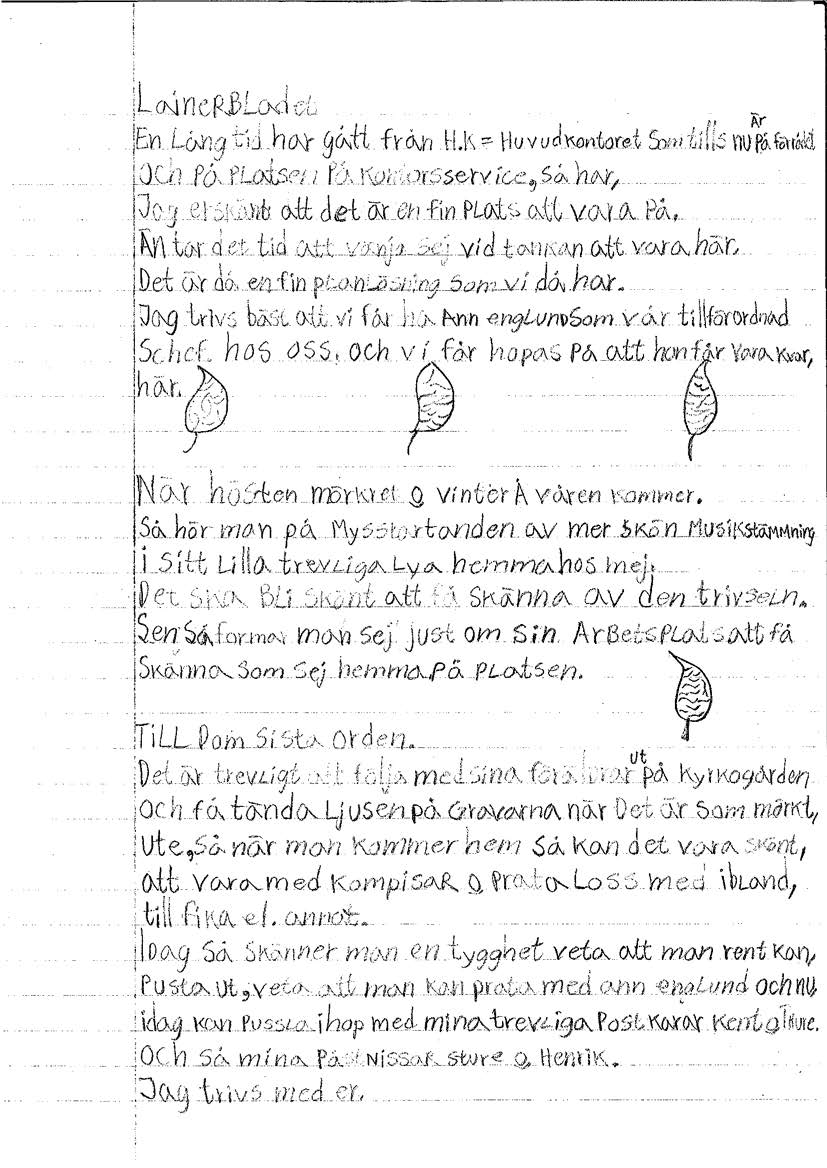 LaineRBLadet
En Lång tid har gått från H.K = Huvudkontoret Som tills nu är på förrådet
Och På PLatsen På Kontorsservice, så har,
Jag erskänt att det är en fin PLats att vara På.
Än tar det tid att vänja sej vid tankan att vara här.
Det är då en fin pLanLösning som vi då har.
Jag trivs bäst att vi får ha Ann engLund Som vår tillförordnad
Schef. hos oss. och vi får hopas På att hon får vara kvar,
här.
När hösten mörkret o vinter Å våren kommer.
Så hör man på Mysstartanden av mer skön Musikstämmning
i sitt Lilla trevLiga Lya hemma hos mej.
Det ska BLi skönt att få skänna av den trivseLn.
Sen så formar man sej just om sin ArBetsPLats att få
Skänna som sej hemma På PLatsen.
TiLL Dom Sista orden.
Det är trevligt att följa med sina föräldrar ut på Kyrkogården
och få tända Ljusen på Gravarna när Det är som mörkt,
ute, så när man kommer hem så kan det vara skönt,
att vara med KompisaR o Prata Loss med ibLand,
till fika el. annot.
Idag Så Skänner man en tygghet veta att man rent kan,
Pusta ut, veta att man kan prata med ann engLund och nu,
idag kan PussLa ihop med mina trevLiga Post Karar Kent o Thure.
Och Så mina Påstnissar sture o Henrik.
Jag trivs med er.